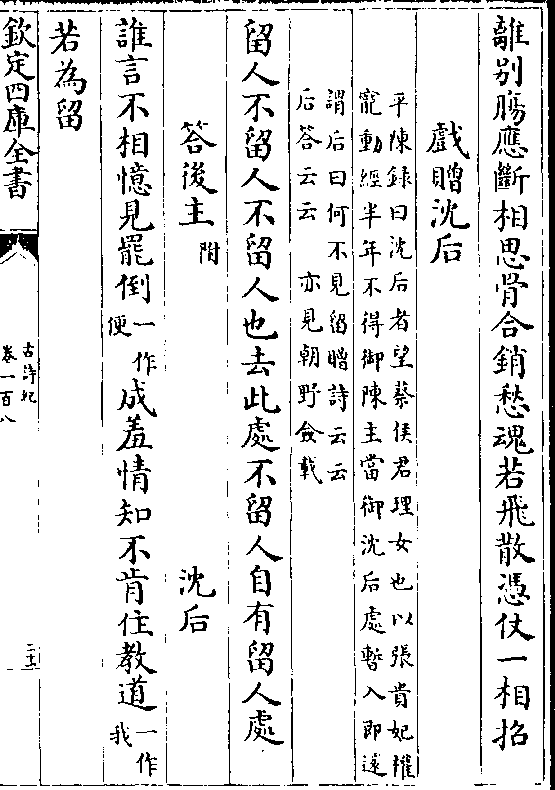 離别膓應斷相思骨合銷愁魂若飛散憑仗一相招
戲贈沈后
平陳録曰沈后者望蔡侯君理女也以張貴妃權
寵動經半年不得御陳主當御沈后處暫入即還
謂后曰何不見留贈詩云云
后答云云 亦見朝野僉載
留人不留人不留人也去此處不留人自有留人處
答後主附 沈后
誰言不相憶見罷倒一作便成羞情知不肯住教道一作我
若為留
欽定四庫全書
古詩紀
卷一百八